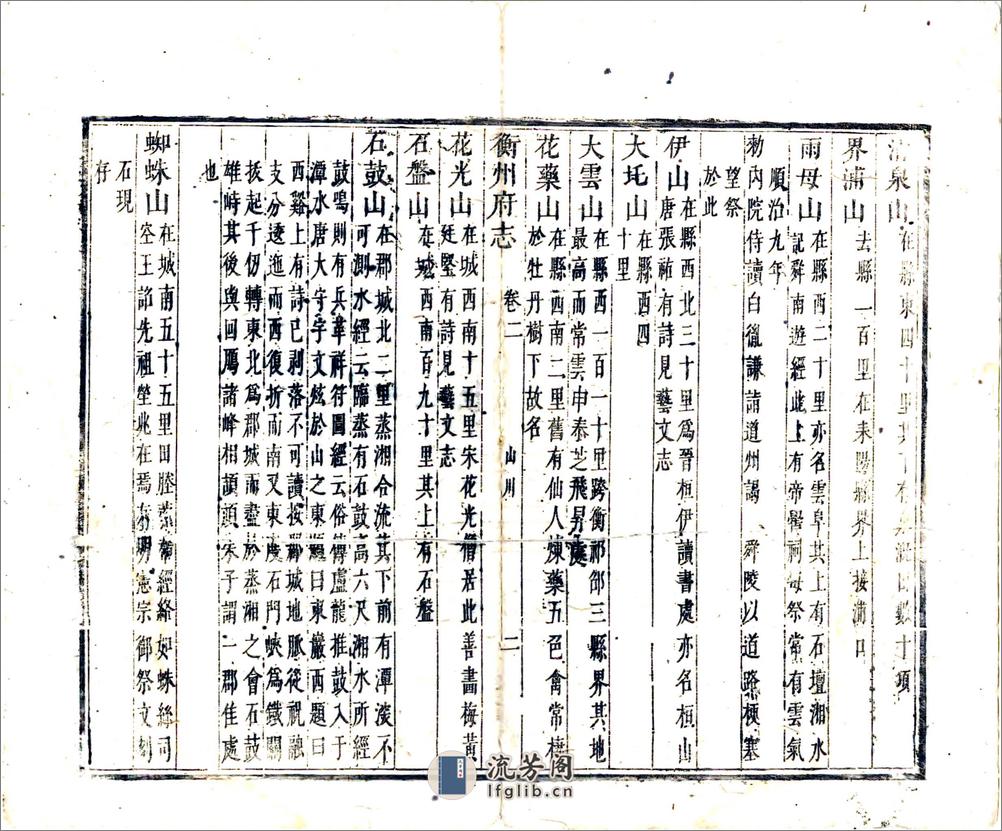 清泉山在縣東四十里其下有泉溉田數十頃
界浦山去縣一百里在耒陽縣界上接浦口
雨母山在縣西二十里亦名雲阜其上有石壇湘水
記舜南遊經此上有帝嚳祠每祭常有雲氣
順治九年
勅內院侍讀白胤謙請道州謁舜陵以道路梗塞
望祭
於此
伊山在縣西北三十里為晉桓伊讀書處亦名桓山
唐張祐有詩見藝文志
大圫山在縣西四
十里
大雲山在縣西一百一十里跨衡祁邵三縣界其地
最高而常雲申泰芝飛昇處
花藥山在縣西南二里舊有仙人煉藥五色禽常棲
於牡丹樹下故名
衡州府志 卷二 山川 二
花光山在城西南十五里宋花光僧居此善畫梅黃
廷堅有詩見藝文志
石盤山在城西南百九十里其上有石盤
石鼓山在郡城北二里蒸湘合流其下前有潭淡不
可測水經云臨蒸有石鼓高六尺湘水所經
鼓鳴則有兵革祥符圖經云俗傳盧龍推鼓入于
潭水唐大守宇文炫於山之東題曰東巖西題曰
西谿上有詩已剥落不可讀按郡城地脈從祝融
支分逶迤而西復折而南又東度石門峽為鐵關
拔起千仞轉東北為郡城而盡於蒸湘之會石鼓
雄峙其後與回鴈諸峰相頡頏朱子謂一郡佳處
也
蜘蛛山在城南五十五里田塍縈帶經絡如蛛絲司
空王詔先祖塋兆在焉有明憲宗御祭文刻
石現
存
流芳阁
lfglib.cn